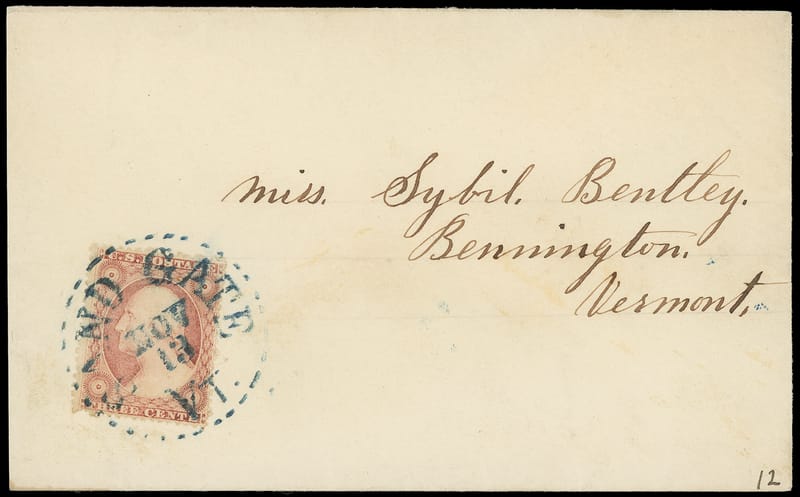 miss. Sybil. Bentley.
Bennington.
Vermont,
U.S. POSTAGE
ND GATE
NOV
13
VT.
THREE CENTS
12